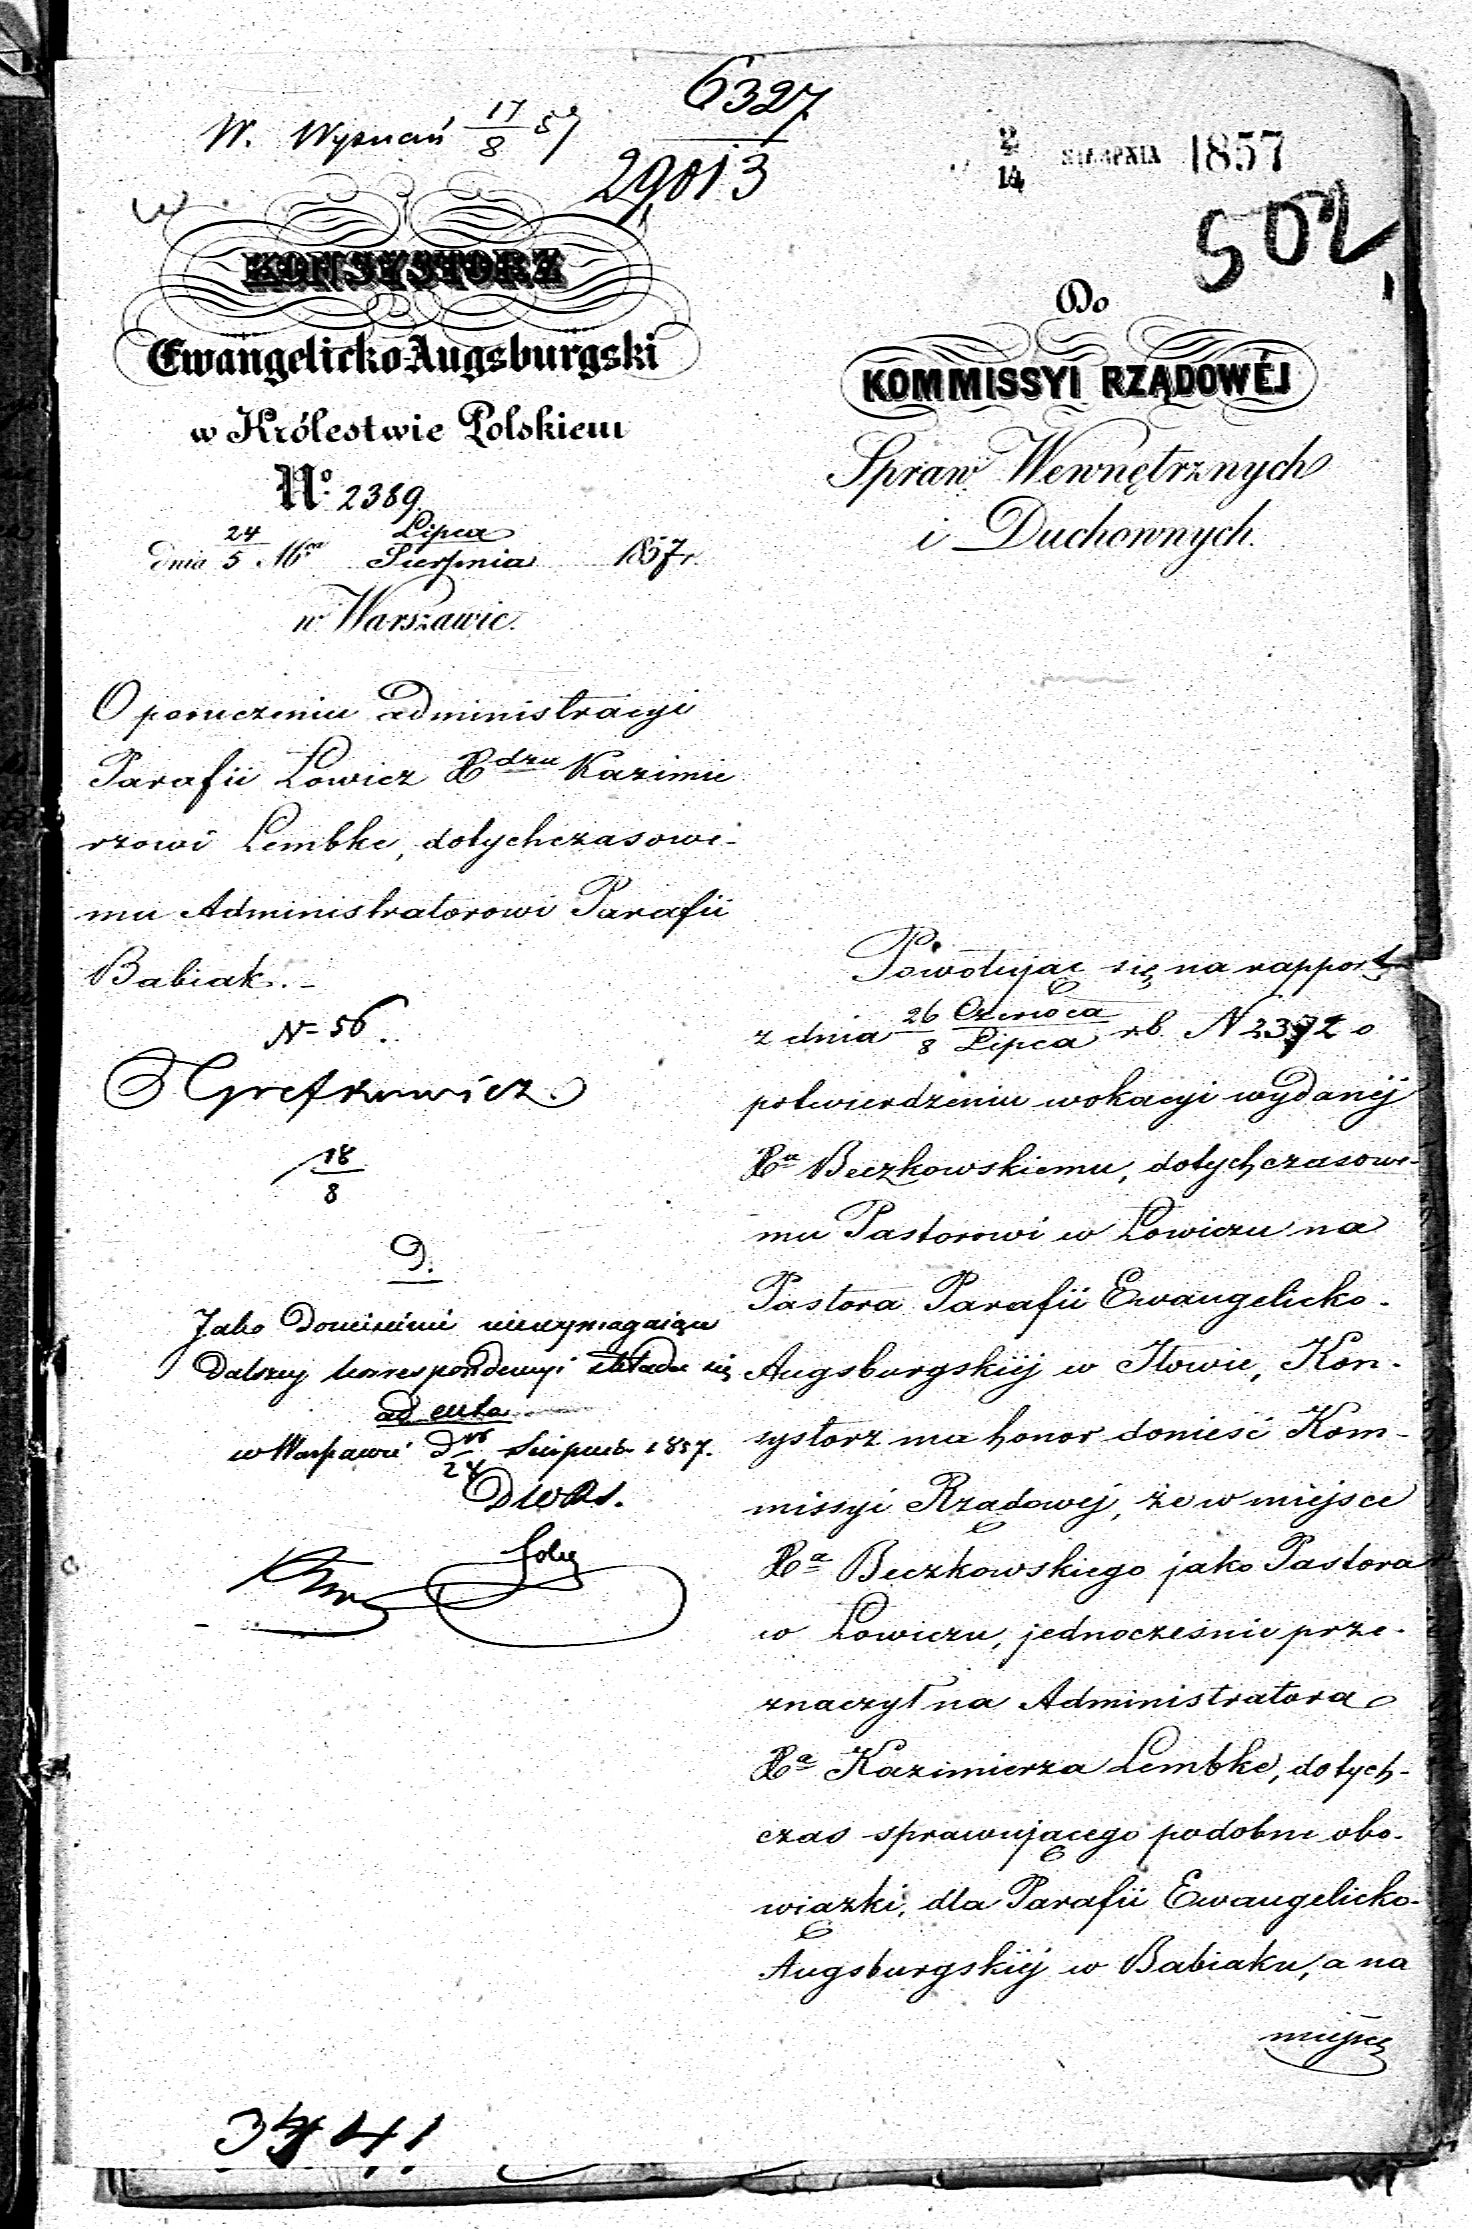 W. Wyznań 17/8 57
6327
29013
2/14 SIERPNIA 1857
502
KONSYSTORZ
Ewangelicko-Augsburgski
w Królestwie Polskiem
No. 2389
dnia 24/5 Mca Lipca/Sierpnia 1857 r.
w Warszawie.
O poruczeniu administracyi
Parafii Łowicz Xdzu Kazimie
rzowi Lembke, dotychczasowe-
mu Administratorowi Parafii
Babiak.
N 56.
18/8
D.
Jako Doniesienie niewymagaiące
Dalszey korrespondencyi składa się
ad acta
w Warszawie d 1857.
Do
KOMMISSYI RZĄDOWÉJ
Spraw Wewnętrznych
i Duchownych.
Powołując się na rapport
z dnia 26 Czerwca/8 Lipca r.b. N 2372 o
potwierdzeniu wokacyi wydanéj
Xa Beczkowskiemu, dotychczasowe-
mu Pastorowi w Łowiczu na
Pastora Parafii Ewangelicko-
Augsburgskiéj w Iłowie, Kon-
systorz ma honor donieść Kom-
missyi Rządowej, że w miejsce
Xa Beczkowskiego jako Pastora
w Łowiczu, jednocześnie prze-
znaczył na Administratora
Xa Kazimierza Lembke, dotych-
czas sprawującego podobne obo-
wiązki, dla Parafii Ewangelicko-
Augsburgskiéj w Babiaku, a na
miejsce